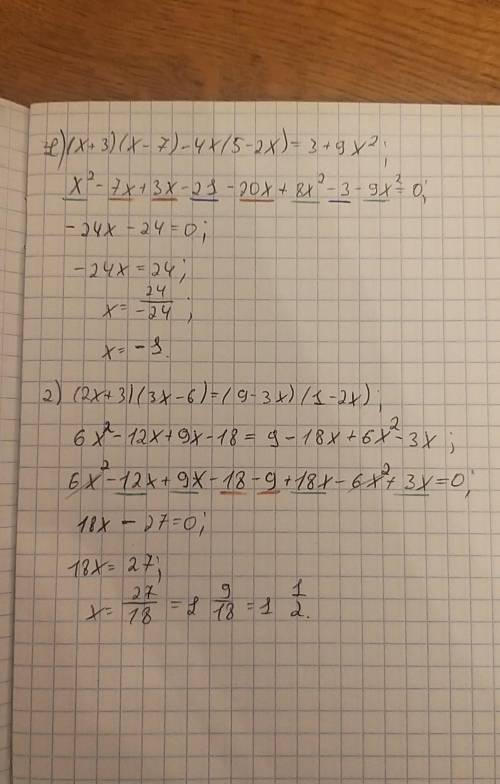 1) (x+3)(x-7)-4x(5-2x)=3+9x²;
x²-7x+3x-21-20x+8x²-3-9x²=0;
-24x-24=0;
-24x=24;
x=24/-24;
x=-1.
2) (2x+3)(3x-6)=(9-3x)(1-2x);
6x²-12x+9x-18=9-18x+6x²-3x;
6x²-12x+9x-18-9+18x-6x²+3x=0;
18x-27=0;
18x=27;
x=27/18=1 9/18=1 1/2.